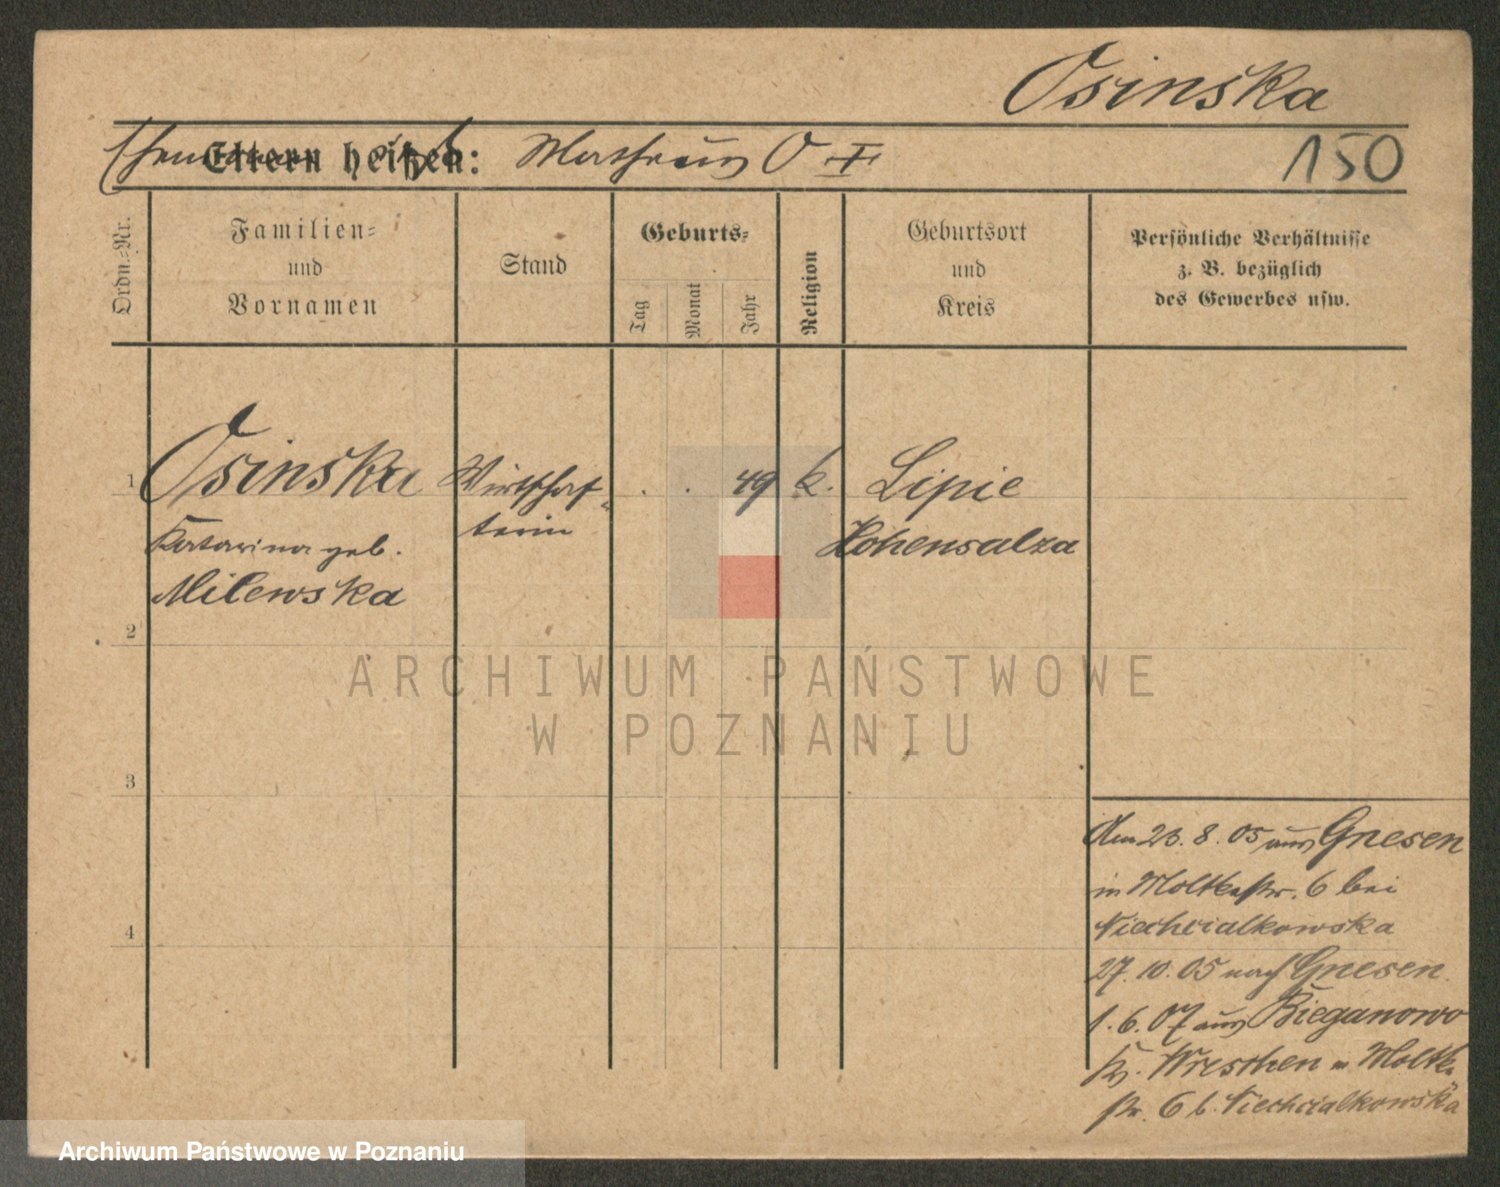 Osinska
Eltern heißen: Matheus O †
150
Ordn.-Nr.
Familien-
und
Vornamen
Stand
Geburts-
Tag
Monat
Jahr
Religion
Geburtsort
und
Kreis
Persönliche Verhältnisse
z. B. bezüglich
des Gewerbes usw.
1 Osinska Wirtschaf- . . 49 k. Lipie
terin
Katarina geb. Hohensalza
Milewska
2
3
4
Am 23. 8. 05 aus Gnesen
in Moltkestr. 6 bei
Niechcialkowska
27. 10. 05 nach Gnesen
1. 6. 07 aus Bieganowo
Kr. Wreschen n Moltke
str. 6 b. Niechcialkowska
ARCHIWUM PAŃSTWOWE
W POZNANIU
Archiwum Państwowe w Poznaniu